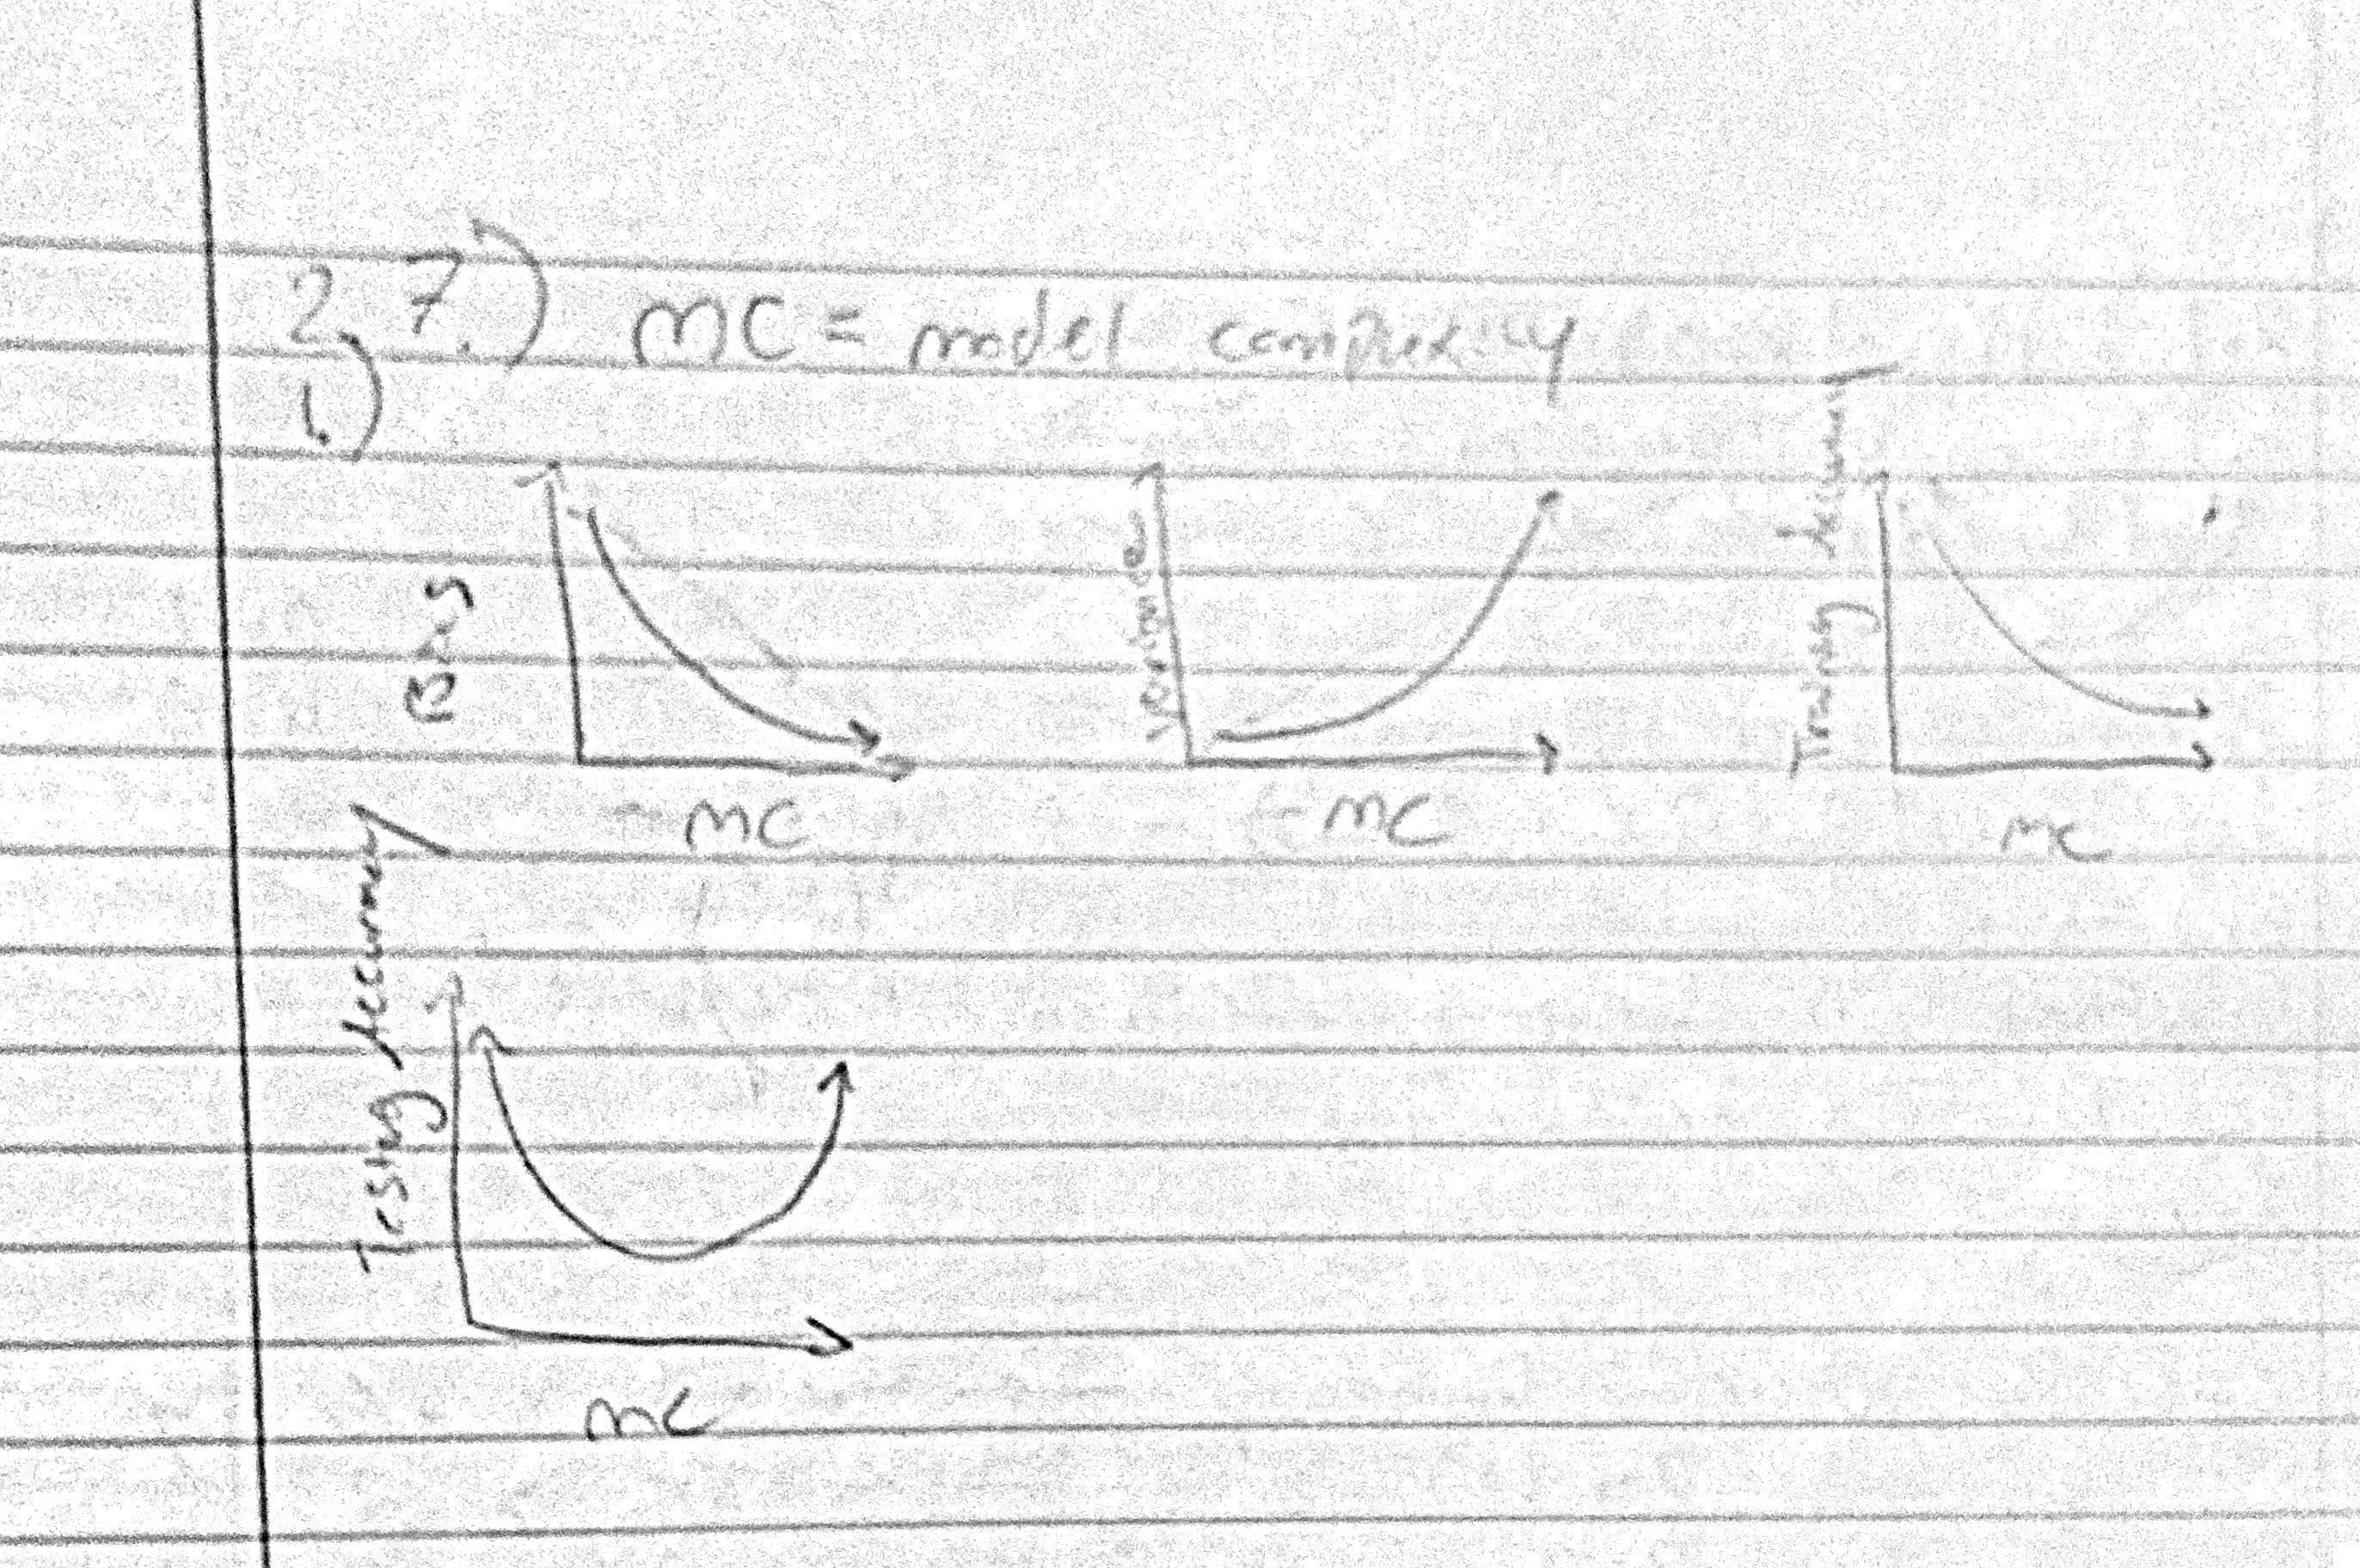 2.7.) MC = model complexity
1.)
Bias
MC
Variance
MC
Training Accuracy
MC
Tesing Accuracy
MC